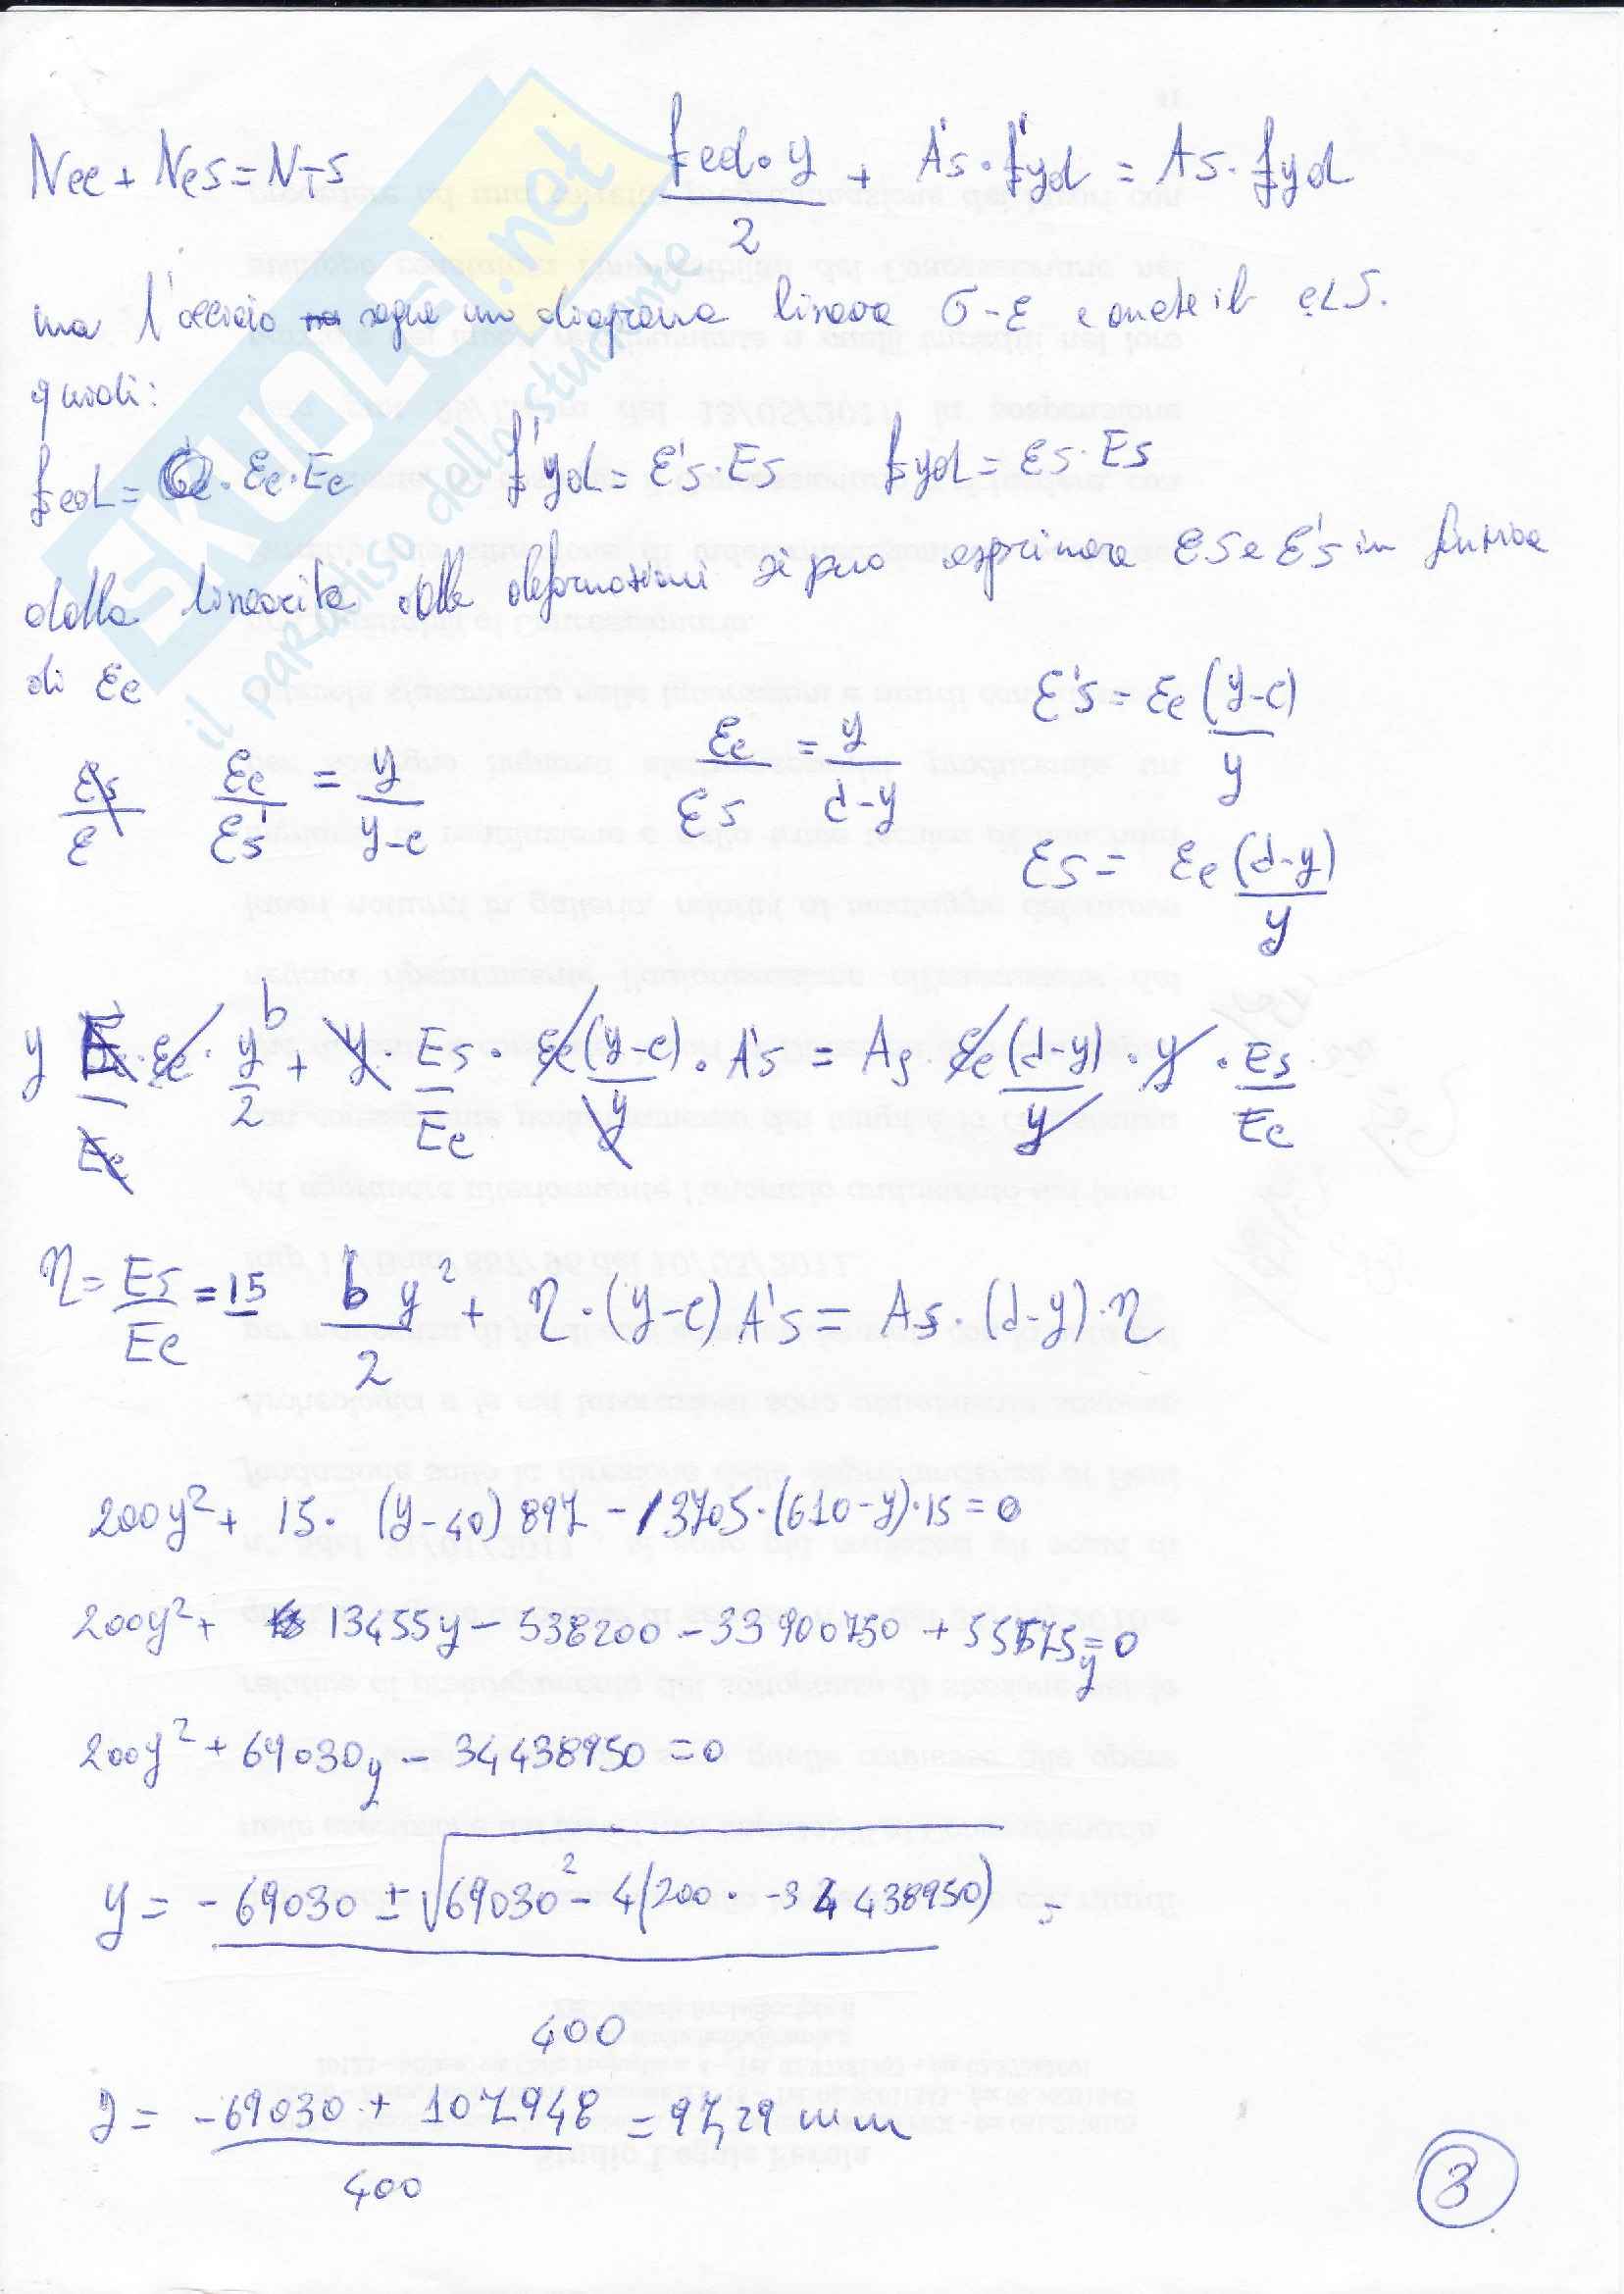 Ncc + Ncs = NTs fcd·y/2 + A's·f'yd = As·fyd
ma l'acciaio segue un diagrama lineare σ-ε e anche il cLS.
quidi:
fcd = εc·Ec f'yd = ε's·Es fyd = εs·Es
dalla linearità delle deformazioni si puo esprimere εs e ε's in funzione
di εc
ε's = εc (y-c)/y
εc/εs' = y/(y-c) εc/εs = y/(d-y)
εs = εc (d-y)/y
y Ec/Ec · εc · y/2 b + y · Es/Ec · εc (y-c)/y · A's = As · εc (d-y)/y · y · Es/Ec
η = Es/Ec = 15 b y²/2 + η·(y-c) A's = As·(d-y)·η
200y² + 15·(y-40) 897 - 3705·(610-y)·15 = 0
200y² + 13455y - 538200 - 33900750 + 55575y = 0
200y² + 69030y - 34438950 = 0
y = -69030 ± √69030² - 4(200·-34438950) =
400
y = -69030 + 107948 = 97,29 mm
400
3
SKUOLA.net
il paradiso dello studente